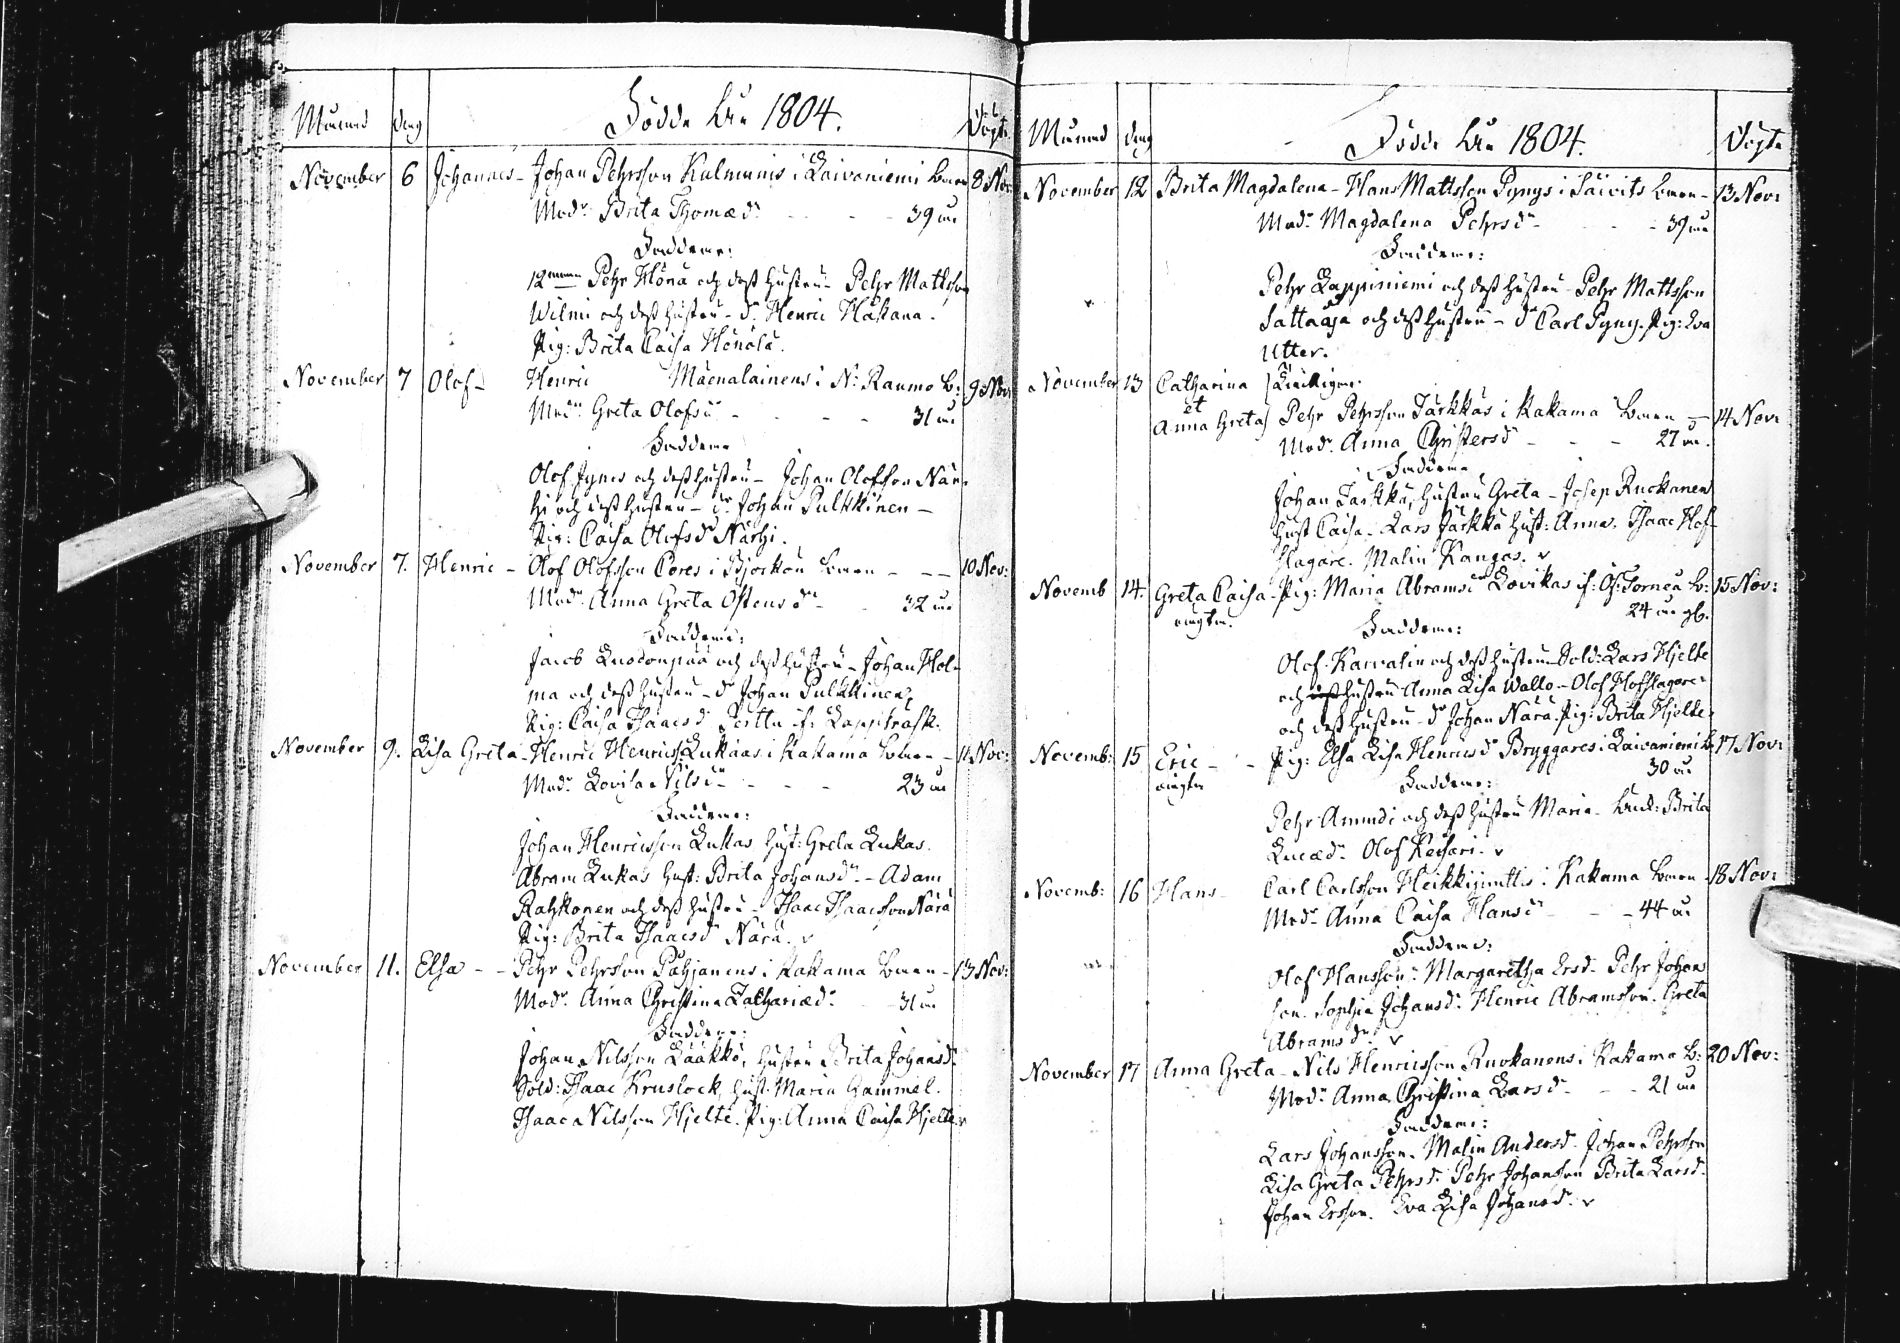 Månad dag Födde År 1804. Döpte
November 6 Johannes - Johan Pehrsson Kulmunis i Laivaniemi barn 8 Nov:
Modr: Brita Thomædr - - - 39 år
Faddrar:
12 man Pehr Höna och dess hustru - Pehr Mattsson
Wilmi och dess hustru - dr. Henric Hakana.
Pig: Brita Caisa Hönälä.
November 7 Olof - Henric Mäenalainens i N: Raumo b: 9 Nov:
Modr: Greta Olofsdr - - - 31 år
Faddrar
Olof Jynes och dess hustru - Johan Olofsson När-
hi och dess hustru - dr Johan Pulkkinen -
Pig: Caisa Olofsd Närhi.
November 7. Henric - Olof Olofsson Pores i Björkön barn - - - 10 Nov:
Modr: Anna Greta Ostensdr - 32 år
Faddrar:
Jacob Kuodonpää och dess hustru - Johan Hol-
ma och dess hustru - dr Johan Pulkkinen
Pig: Caisa Isaacsd Perttu if: Lappträsk.
November 9. Lisa Greta - Henric Henricss: Lukaas i Kakama barn - 11 Nov:
Modr Lovisa Nilsdr - - - 23 år
Faddrar:
Johan Henricsson Lukas hust: Greta Lukas.
Abram Lukas hust: Brita Johansdr. - Adam
Rahkonen och dess hustru - Isaac Isaacsson Nära
Pig: Brita Isaacsd Nära. v
November 11. Elsa - - Pehr Pehrsson Pohjanens i Kakama barn - 13 Nov:
Modr: Anna Christina Zachariædr. - 31 år
Faddrar:
Johan Nilsson Lääkkö, hustru Brita Johansd.
Sold: Isaac Kruslock, hust: Maria Gammel.
Isaac Nilsson Hjelte. Pig: Anna Caisa Hjelte. v
Månad dag Födde År 1804. Döpte
November 12 Brita Magdalena - Hans Mattsson Pynys i Säivits barn - 13 Nov:
Modr Magdalena Pehrsdr - - - 39 år
Faddrar:
Pehr Lappiniemi och dess hustru - Pehr Mattsson
Sattaaja och dess hustru - dr Carl Pyny. Pig: Eva
Utter.
November 13 Catharina } Tvillingar.
et
Anna Greta } Pehr Pehrsson Järkkäs i Kakama barn - 14 Nov:
Modr Anna Christersdr - - - 27 år.
Faddrar
Johan Järkkä, hustru Greta - Josep Ruokanen
hust Caisa - Lars Järkkä hust: Anna. Isaac Hof-
slagare. Malin Kangas. v
Novemb 14. Greta Caisa - Pig: Maria Abramsdr Lovikas if: Öf: Torneå b: 15 Nov:
oægta. 24 år gl.
Faddrar:
Olof Karvalin och dess hustru Sold: Lars Hjelte
och dess hustru Anna Lisa Wallo - Olof Hofslagare
och dess hustru - dr Johan Nära. Pig: Brita Hjelte.
Novemb: 15 Eric - - Pig: Elsa Lisa Henricsd Bryggares i Laivaniemi b. 17 Nov:
oægta 30 år
Faddrar:
Pehr Amundi och dess hustru Maria - Brita
Lucædr. Olof Keisari. v
Novemb: 16 Hans - Carl Carlsson Heikkipunttis i Kakama barn - 18 Nov:
Modr Anna Caisa Hansdr - - - 44 år
Faddrar:
Olof Hansson. Margaretha Ersd. Pehr Johans
son. Sophia Johansd. Henric Abramsson. Greta
Abramsdr. v
November 17 Anna Greta - Nils Henricsson Ruokanens i Kakama b: 20 Nov:
Modr Anna Christina Larsd - - - 21 år
Faddrar:
Lars Johansson. Malin Andersd. Johan Pehrsson
Lisa Greta Pehrsd. Pehr Johansson Brita Larsd.
Johan Ersson. Eva Lisa Johansd. v